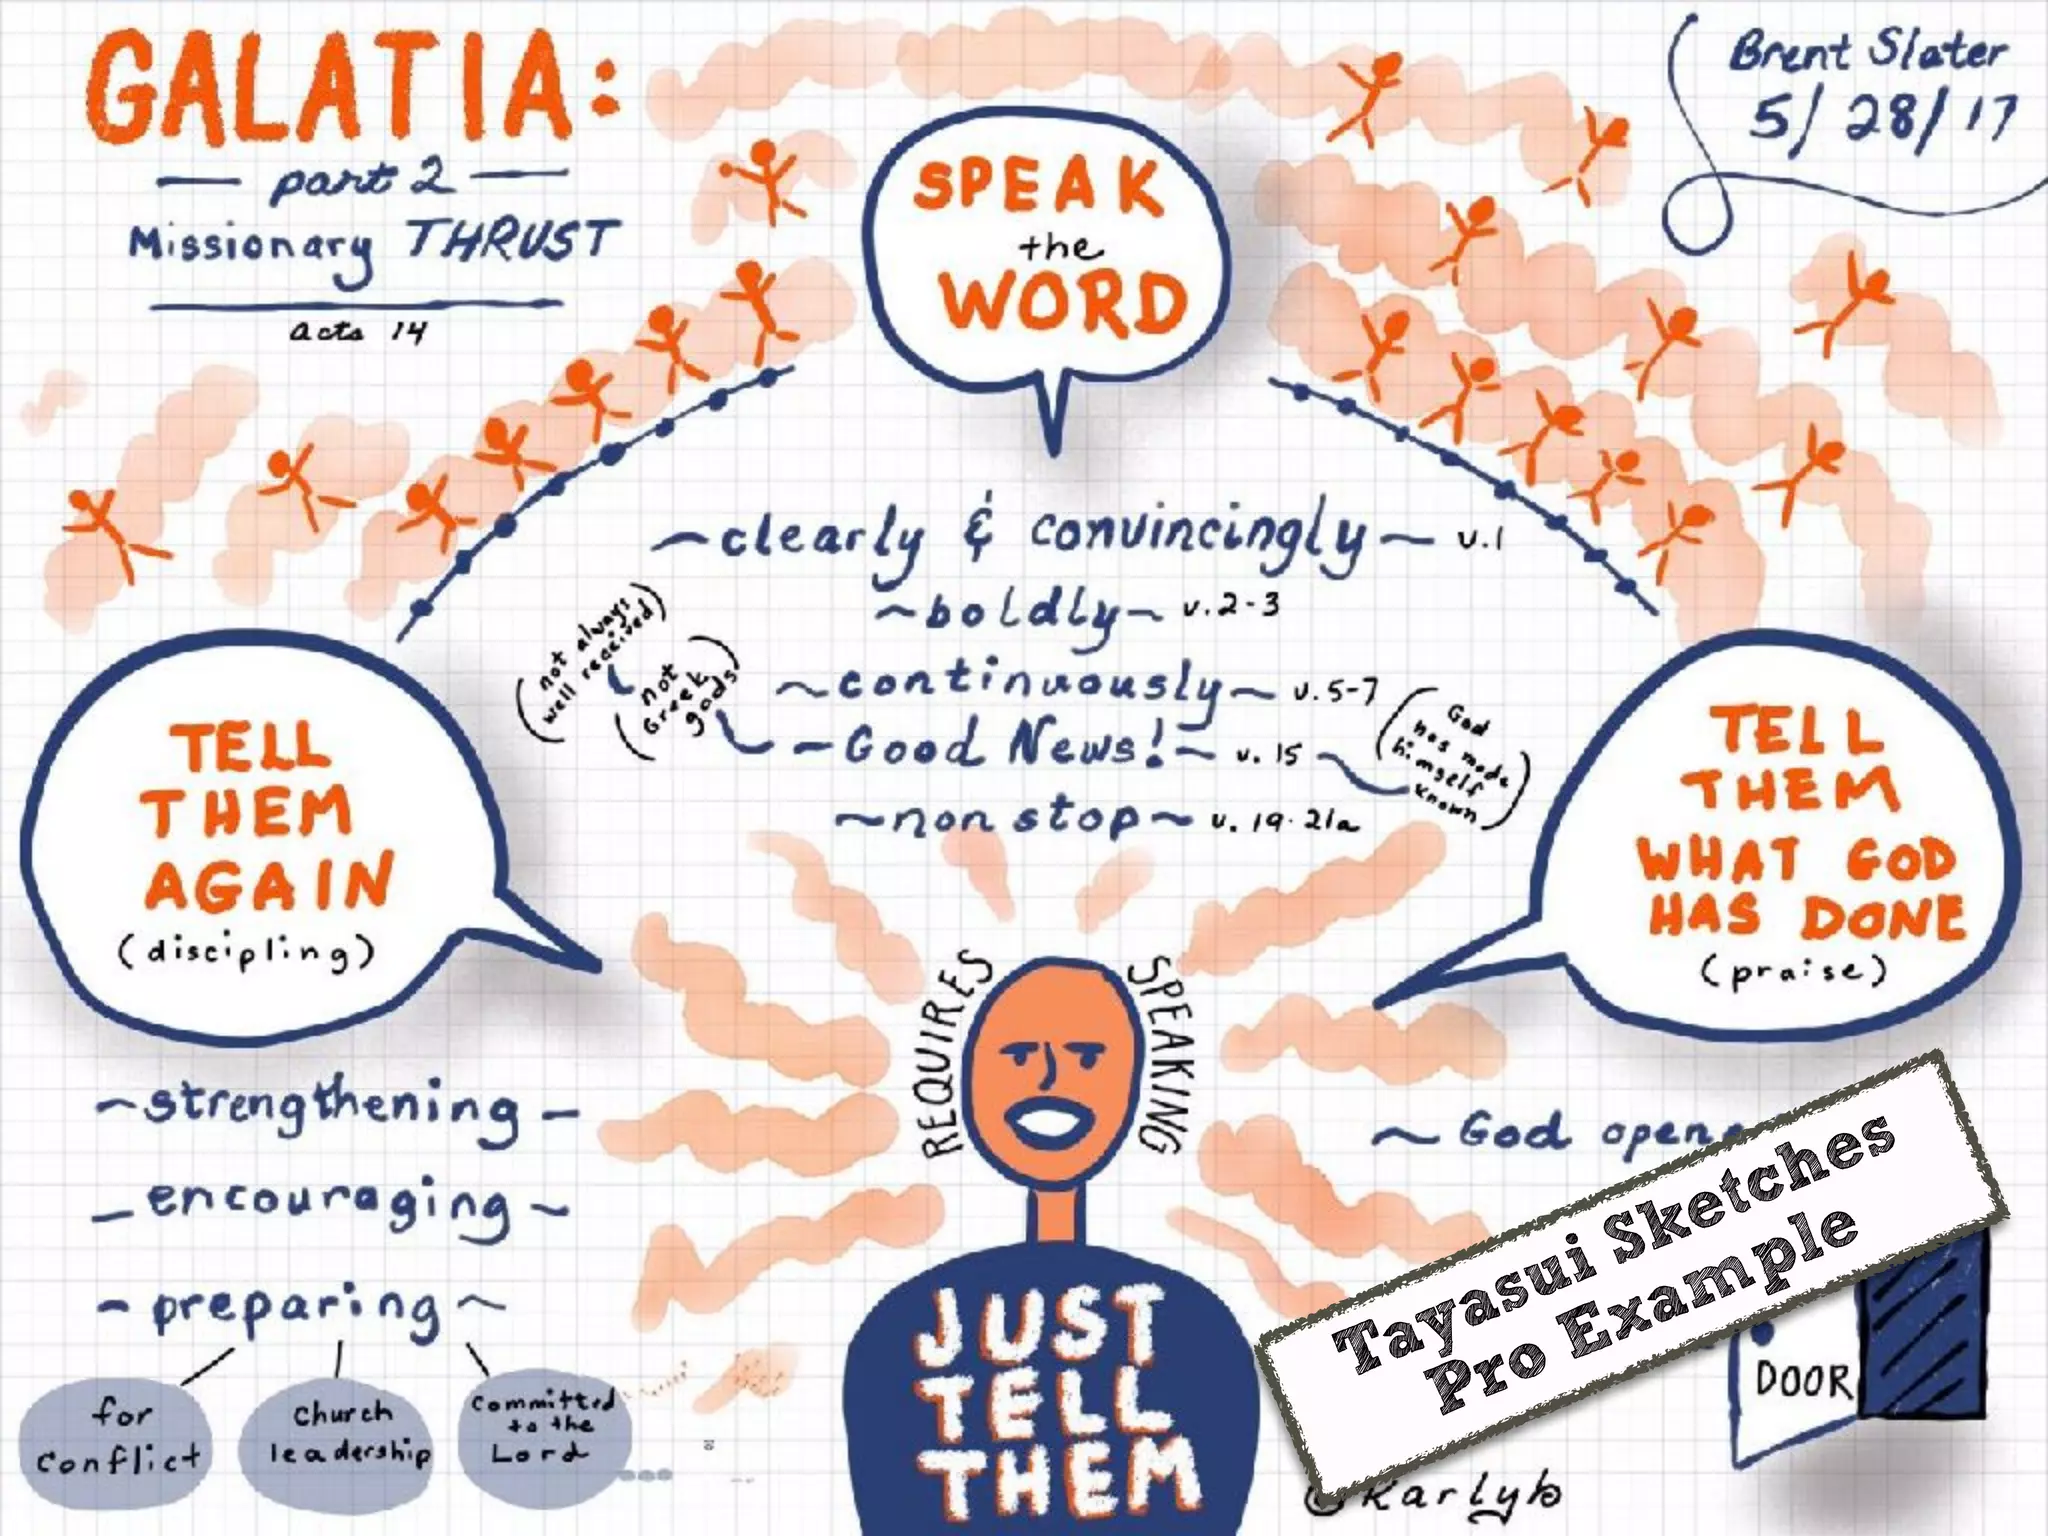 GALATIA:
part 2
Missionary THRUST
acts 14
Brent Slater
5/28/17
SPEAK
the
WORD
~clearly & convincingly~ v.1
~boldly~ v.2-3
~continuously~ v.5-7
(not always
well received)
(not
Greek
gods)
~Good News!~ v. 15
(God
has made
himself
known)
~non stop~ v. 19-21a
TELL
THEM
AGAIN
(discipling)
~strengthening~
~encouraging~
~preparing~
for
conflict
church
leadership
committed
to the
Lord
REQUIRES
SPEAKING
JUST
TELL
THEM
TELL
THEM
WHAT GOD
HAS DONE
(praise)
~ God open
Tayasui Sketches
Pro Example
DOOR
©Karlyb